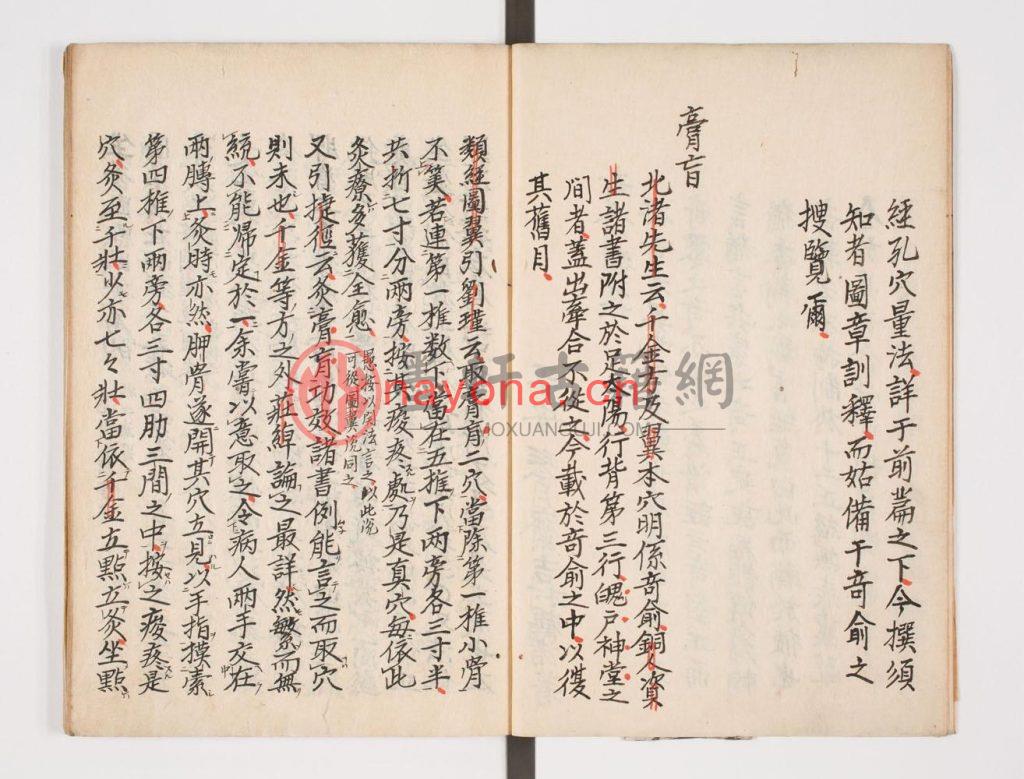 經孔穴量法詳于前篇之下今撰須
知者圖章訓釋而姑備于奇俞之
搜覽爾
膏肓
北渚先生云千金方及翼本穴明係奇俞銅人資
生諸書附之於足太陽行背第三行魄戶神堂之
間者蓋出牽合不從矣今載於奇俞之中以復
其舊月
類經圖翼引劉瑾云取膏肓二穴當除第一椎小骨
不筭若連第一椎数下當在五椎下兩旁各三寸半
共折七寸分兩旁按
痠疼處乃是真穴每依此
灸療多獲全愈
愚按以同法言之以此說
可從圖翼說同之
又引捷徑云灸膏肓功效諸書例能言之而取穴
則未也千金等方之外莊綽論之最詳然繁而無
統不能歸定於一余嘗以意取之令病人兩手交在
兩膊上灸時亦然胛骨遂開其穴立見以手指摸索
第四椎下兩旁各三寸四肋三間之中按之痠疼是
穴灸至千壯少亦七々壯當依千金立點立灸坐點
墨軒古籍網
nayona.cn
MOXUANGUJI.COM